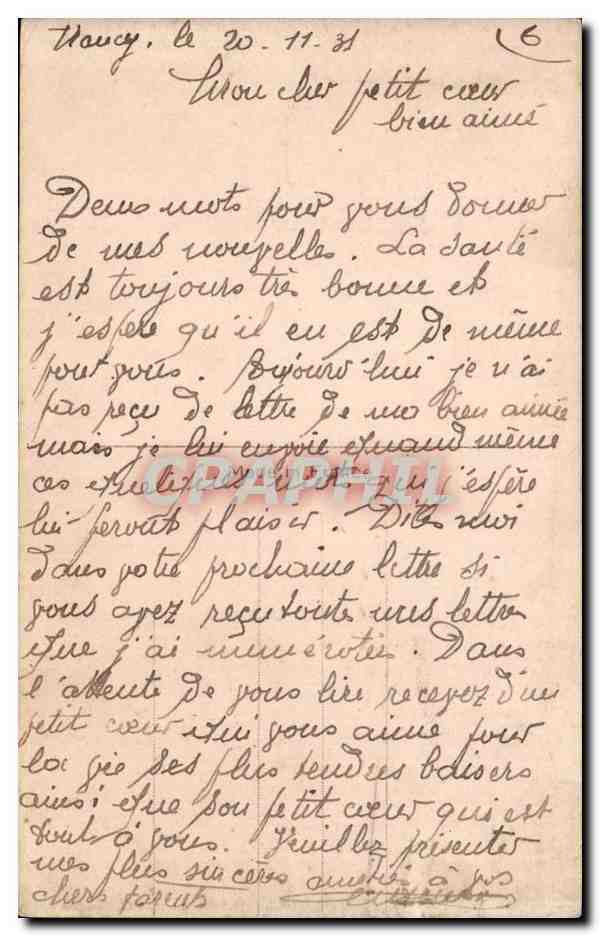 Nancy, le 20-11-31
6
Mon cher petit cœur
bien aimé
Deux mots pour vous donner
de mes nouvelles. La santé
est toujours très bonne et
j'espère qu'il en est de même
pour vous. Aujourd'hui je n'ai
pas reçu de lettre de ma bien aimée
mais je lui envoie quand même
ces quelques mots qui j'espère
CPAPHIL
lui feront plaisir. Dites moi
dans votre prochaine lettre si
vous avez reçu toute mes lettres
que j'ai numérotées. Dans
l'attente de vous lire recevez d'un
petit cœur qui vous aime pour
la vie ses plus tendres baisers
ainsi que son petit cœur qui est
tout à vous. Veuillez présenter
mes plus sincères amitié à vos
chers parents